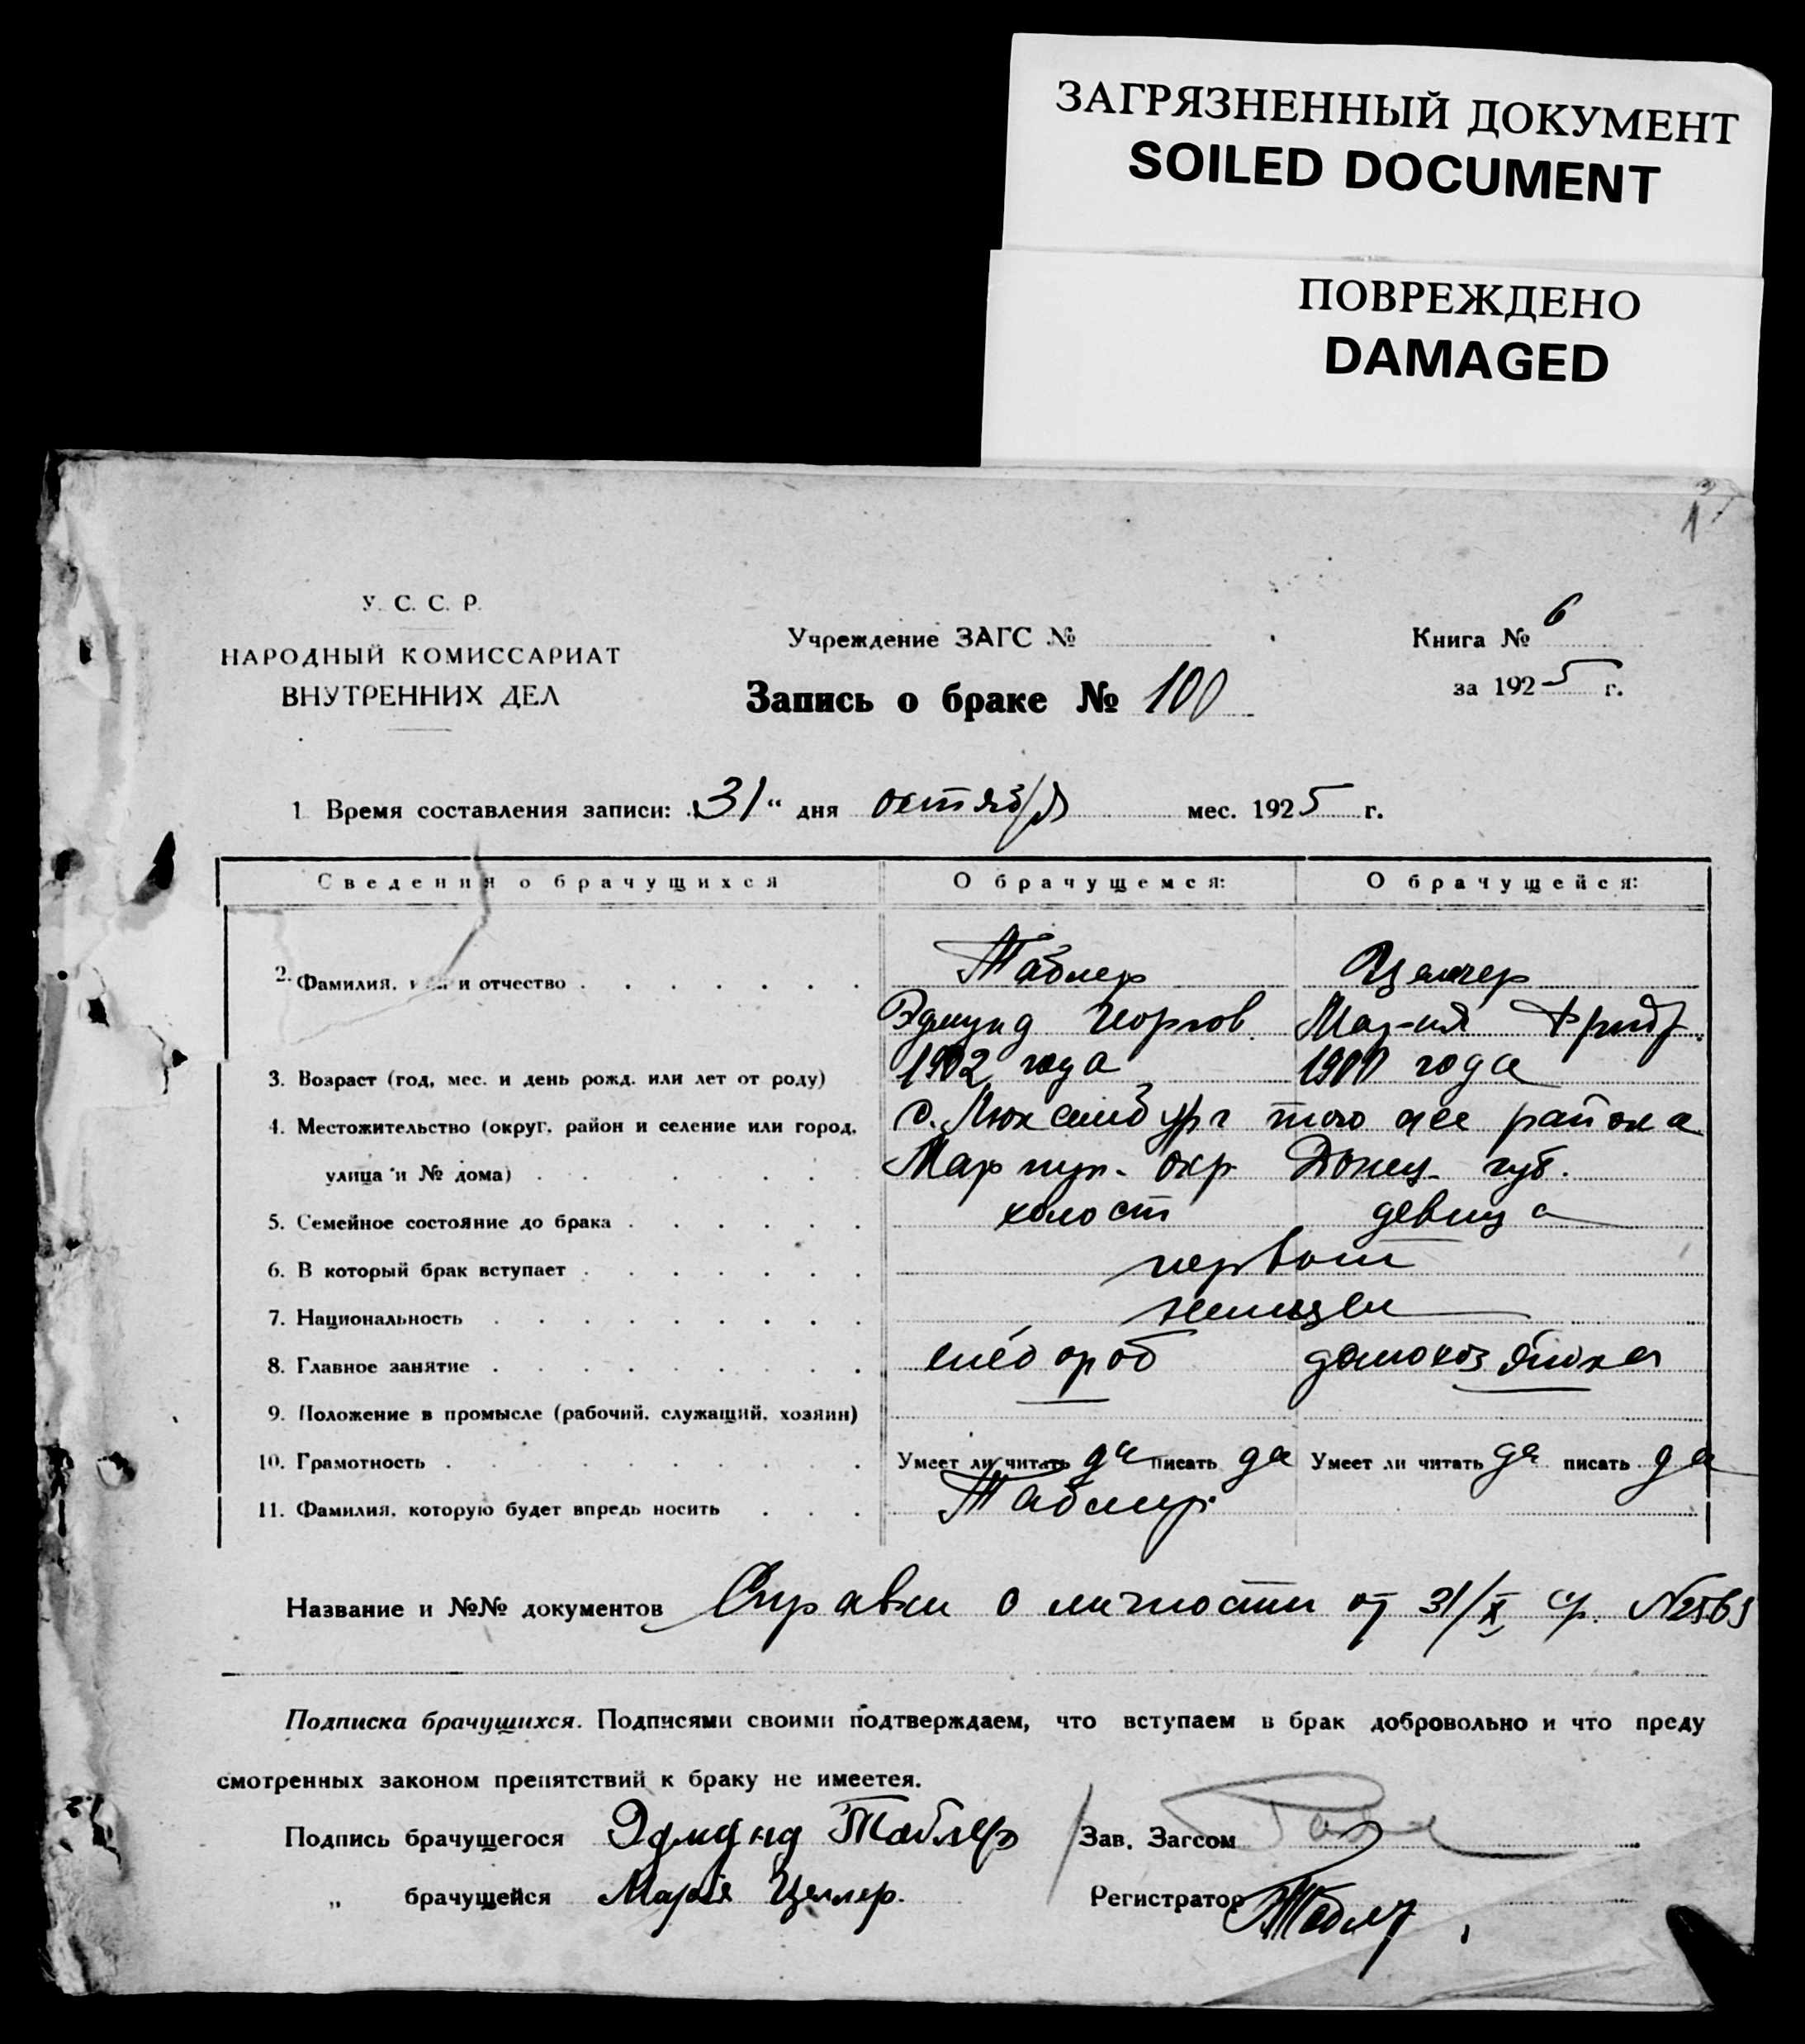 ЗАГРЯЗНЕННЫЙ ДОКУМЕНТ
SOILED DOCUMENT
ПОВРЕЖДЕНО
DAMAGED
У. С. С. Р.
НАРОДНЫЙ КОМИССАРИАТ
ВНУТРЕННИХ ДЕЛ
Учреждение ЗАГС №
Запись о браке № 100
Книга № 6
за 1925 г.
1 Время составления записи: „31“ дня октября мес. 1925 г.
Сведения о брачущихся О брачущемся: О брачущейся:
2. Фамилия, и отчество Таблер Целлер
Эдмунд Георгов. Мар-ия Фридр.
3. Возраст (год, мес. и день рожд. или лет от роду) 1902 года 1900 года
4. Местожительство (округ, район и селение или город, с. Люксембург того же района
улица и № дома) Мариуп. окр. Донец. губ.
5. Семейное состояние до брака холост девица
6. В который брак вступает первый
7. Национальность немцы
8. Главное занятие хлебороб домохозяйка
9. Положение в промысле (рабочий, служащий, хозяин)
10. Грамотность Умеет ли читать да писать да Умеет ли читать да писать да
11. Фамилия, которую будет впредь носить Таблер
Название и №№ документов Справки о личности от 31/X с/г. №
Подписка брачущихся. Подписями своими подтверждаем, что вступаем в брак добровольно и что преду
смотренных законом препятствий к браку не имеется.
Подпись брачущегося Эдмунд Таблер Зав. Загсом
„ брачущейся Мария Целлер. Регистратор